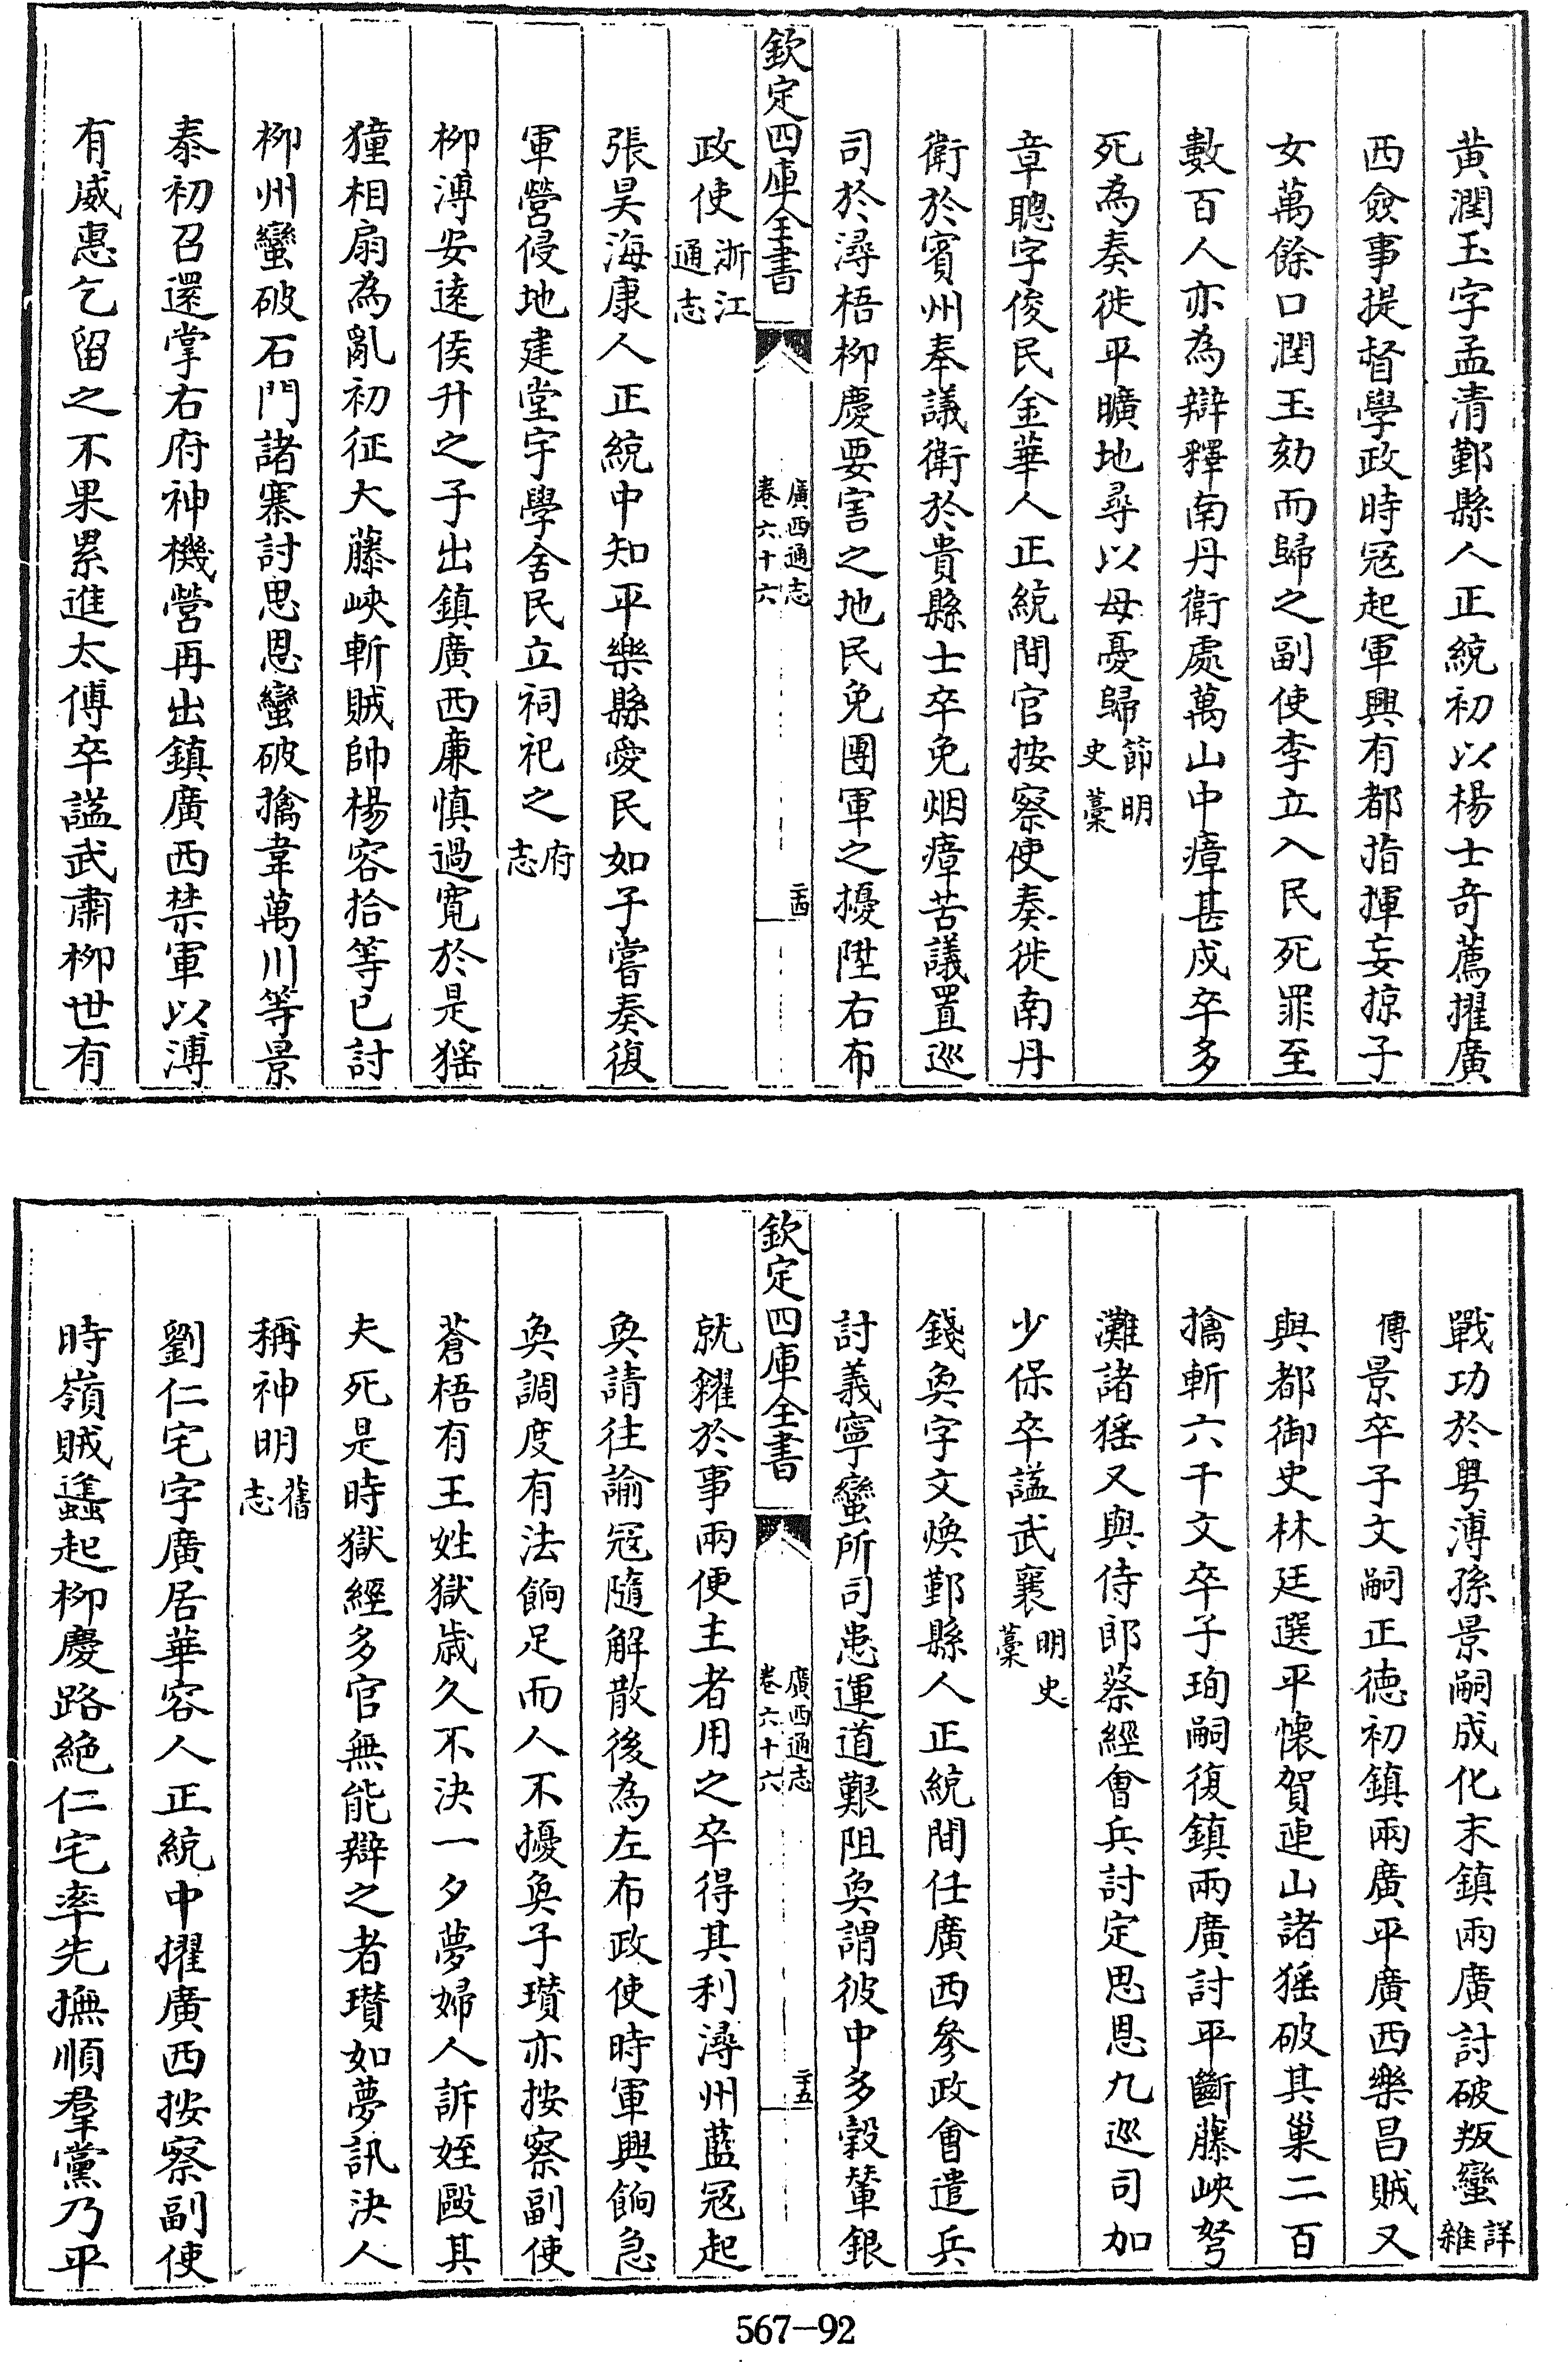 黄潤玉字孟清鄞縣人正統初以楊士竒薦擢廣
西僉事提督學政時冦起軍興有都指揮妄掠子
女萬餘口潤玉劾而歸之副使李立入民死罪至
數百人亦為辯釋南丹衛處萬山中瘴甚戍卒多
死為奏徙平曠地尋以母憂歸節明史藁
章聰字俊民金華人正統間官按察使奏徙南丹
衛於賓州奉議衛於貴縣士卒免烟瘴苦議置巡
司於潯梧柳慶要害之地民免團軍之擾陞右布
欽定四庫全書
廣西通志
卷六十六
二十四
政使浙江通志
張昊海康人正統中知平樂縣愛民如子嘗奏復
軍營侵地建堂宇學舍民立祠祀之府志
柳溥安遠侯升之子出鎮廣西廉慎過寛於是猺
獞相扇為亂初征大藤峽斬賊帥楊容拾等已討
柳州蠻破石門諸寨討思恩蠻破擒韋萬川等景
泰初召還掌右府神機營再出鎮廣西禁軍以溥
有威惠乞留之不果累進太傅卒謚武肅柳世有
戰功於粤溥孫景嗣成化末鎮兩廣討破叛蠻詳雜
傳景卒子文嗣正徳初鎮兩廣平廣西樂昌賊又
與都御史林廷選平懐賀連山諸猺破其巢二百
擒斬六千文卒子珣嗣復鎮兩廣討平斷藤峽弩
灘諸猺又與侍郎蔡經會兵討定思恩九巡司加
少保卒謚武襄明史藁
錢奐字文煥鄞縣人正統間任廣西參政會遣兵
討義寧蠻所司患運道艱阻奐謂彼中多榖輦銀
欽定四庫全書
廣西通志
卷六十六
二十五
就糴於事兩便主者用之卒得其利潯州藍冦起
奐請往諭冦隨解散後為左布政使時軍興餉急
奐調度有法餉足而人不擾奐子瓚亦按察副使
蒼梧有王姓獄歳久不決一夕夢婦人訴姪毆其
夫死是時獄經多官無能辯之者瓚如夢訊決人
稱神明舊志
劉仁宅字廣居華容人正統中擢廣西按察副使
時嶺賊蠭起柳慶路絶仁宅率先撫順羣黨乃平
567-92